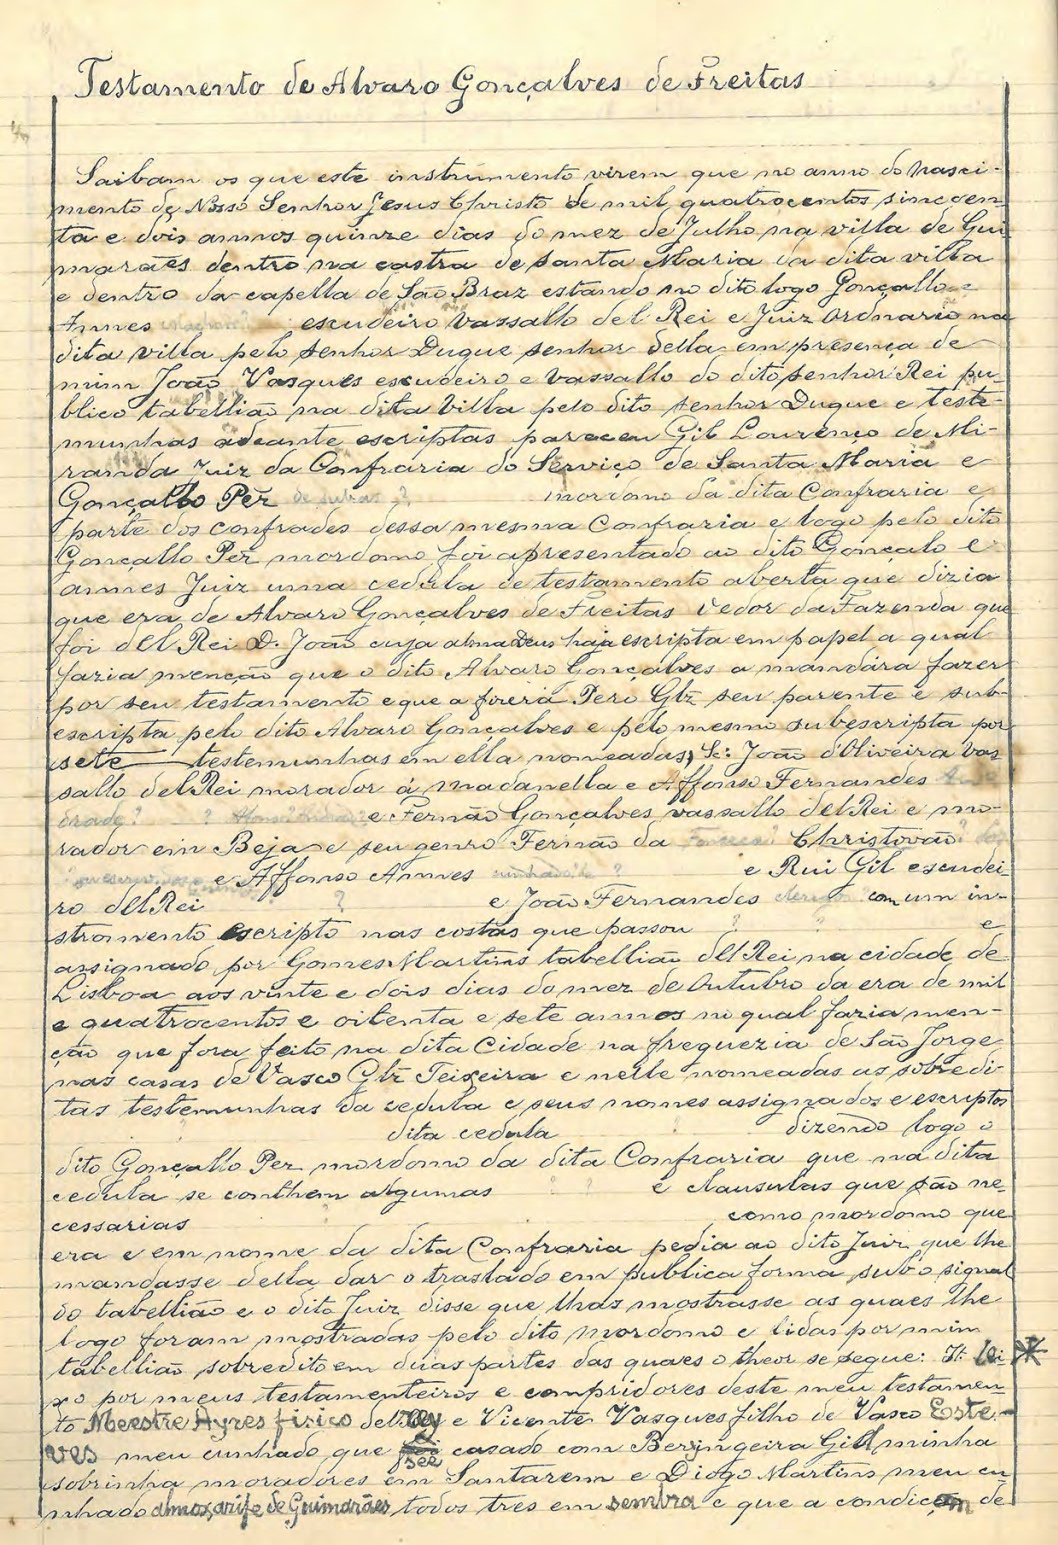 Testamento de Alvaro Gonçalves de Freitas
Saibam os que este instrumento virem que no anno do nasci-
mento de Nosso Senhor Jesus Christo de mil quatrocentos sincoen
ta e dois annos quinze dias do mez de Julho na villa de Gui
marães dentro na castra de Santa Maria da dita villa
e dentro da capella de São Braz estando no dito logo Gonçallo e
Annes escudeiro vassallo del Rei e Juiz Ordnario na
dita villa pelo senhor Duque senhor della em presença de
mim João Vasques escudeiro e vassallo do dito senhor Rei pu-
blico tabellião na dita Villa pelo dito senhor Duque e teste-
munhas adeante escriptas pareceu Gil Lourenço de Mi-
randa Juiz da Confraria do Serviço de Santa Maria e
Gonçallo Pez de sutras ? mordomo da dita Confraria e
parte dos confrades dessa mesma Confraria e logo pelo dito
Gonçallo Pez mordomo foi apresentado ao dito Gonçalo e
annes Juiz uma cedula de testamento aberta que dizia
que era de Alvaro Gonçalves de Freitas Vedor da Fazenda que
foi del Rei D. João cuja alma Deus haja escripta em papel a qual
fazia menção que o dito Alvaro Gonçalves a mandára fazer
por seu testamento e que a fizera Pero Glz seu parente e sub-
escripta pelo dito Alvaro Gonçalves e pelo mesmo subescripta por
sete testemunhas em ella nomeadas, Sc: João d'Oliveira vas
sallo del Rei morador á madanella e Affonso Fernandes
? ? e Fernão Gonçalves vassallo del Rei e mo-
rador em Beja e seu genro Fernão da Fonceca? Christovão ?
e Affonso Annes cunhado de ? e Rui Gil escudei-
ro del Rei ? e João Fernandes clerigo com um in-
stromento escripto nas costas que passou ? e
assignado por Gomes Martins tabellião del Rei na cidade de
Lisboa aos vinte e dois dias do mez de Outubro da era de mil
e quatrocentos e oitenta e sete annos no qual fazia men-
ção que fora feito na dita Cidade na freguezia de São Jorge
nas casas de Vasco Glz Teixeira e nelle nomeadas as sobredi-
tas testemunhas da cedula e seus nomes assignados e escriptos
dita cedula dizendo logo o
dito Gonçallo Pez mordomo da dita Confraria que na dita
cedula se conthem algumas ? ? e clausulas que são ne-
cessarias como mordomo que
era e em nome da dita Confraria pedia ao dito Juiz que lhe
mandasse della dar o traslado em publica forma sub o signal
do tabellião e o dito Juiz disse que lhas mostrasse as quaes lhe
logo foram mostradas pelo dito mordomo e lidas por mim
tabellião sobredito em duas partes das quaes o theor se segue: It: lei *
xo por meus testamenteiros e compridores deste meu testamen-
to Meestre Ayres fisico del Rey e Vicente Vasques filho de Vasco Este-
ves meu cunhado que see casado com Beringeira Gill minha
sobrinha moradores em Santarem e Diogo Martins meu cu-
nhado almoxarife de Guimarães todos tres em sembra e que a condiçom de